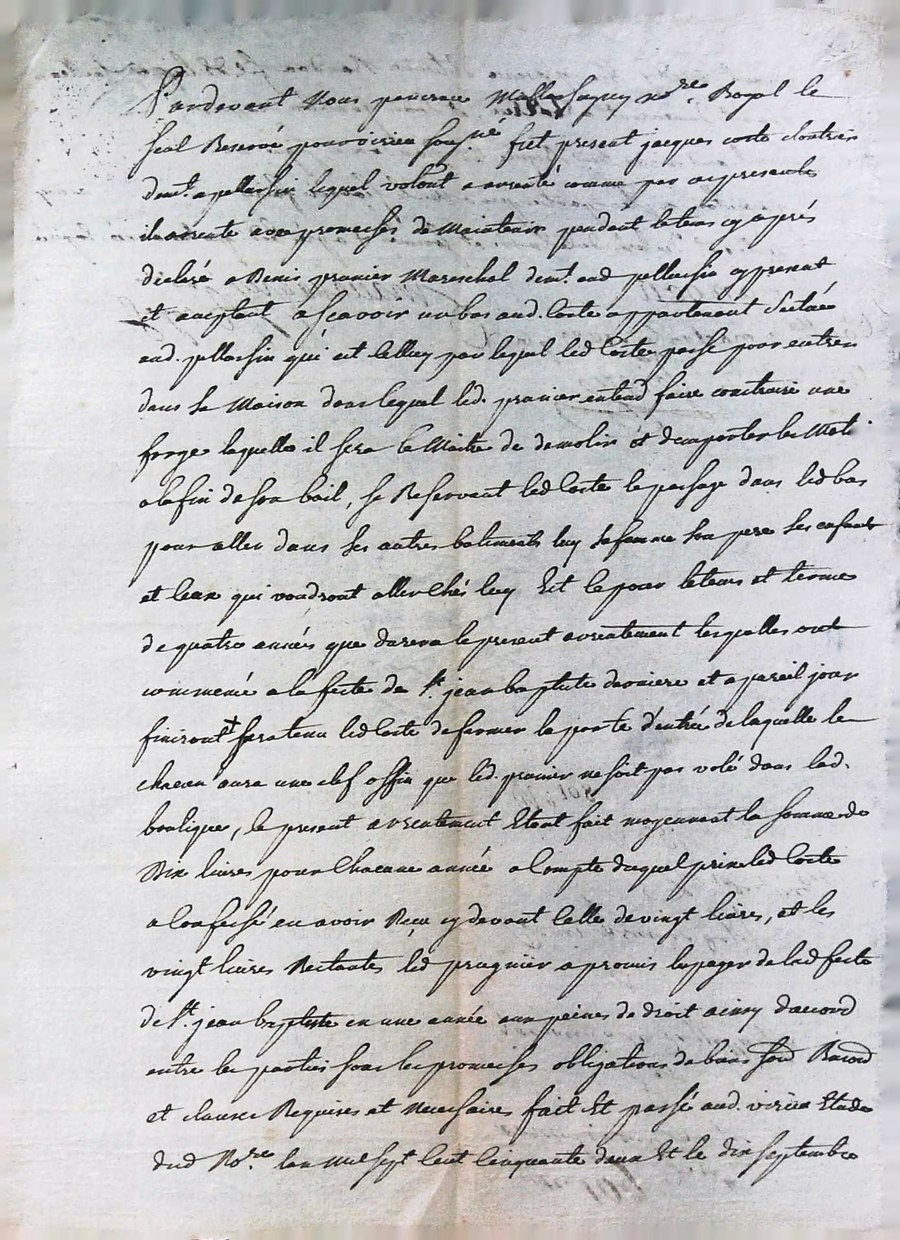 Pardevant Nous pancrace No.re Royal le
seal Reservé pourvoirieu sous.né fut present jacques coste cloutrier
dem.t a pellassin lequel volont a arrenté comme par ces presentes
il arrente avec promesses de Maintenir pendant le tems cy aprés
declaré a Benis prunier Mareschal dem.t aud pellassin cy present
et aceptant a scavoir un bas aud. Coste appartenant Scitué
aud. pellassin qui est Celluy par lequel led Coste passe pour entrer
dans sa Maison dans lequel led. prunier entend faire construire une
forge laquelle il sera le Maitre de demolir et d'emporter les Mat.
a la fin de son bail, se Reservant led Coste le passage dans led bas
pour aller dans ses autres batiments luy sa femme son pere ses enfants
et Ceux qui voudront aller Chés luy Et le pour le tems et terme
de quatre années que durera le present arrentement lesquelles ont
commencé a la feste de S.t jean baptiste derniere et a pareil jour
finiront sera tenu led Coste de fermer la porte d'entrée de laquelle le
chacun aura une clef affin que led. prunier ne soit pas volé dans lad.
boutique, le present arrentement Etant fait moyennant la somme de
Dix livres pour Chacune année a Compte duquel prix led Coste
a Confessé en avoir Reçu cy devant Celle de vingt livres, et les
vingt livres Restantes led prugnier a promis la payer de lad feste
de S.t jean baptiste en une année aux peines de droit ainsy d'accord
entre les parties sous les promesses obligations de biens
et clauses Requises et Necessaires fait Et passé aud. virieu Etude
dud No.re lan Mil sept Cent Cinquante deux Et le dix septembre